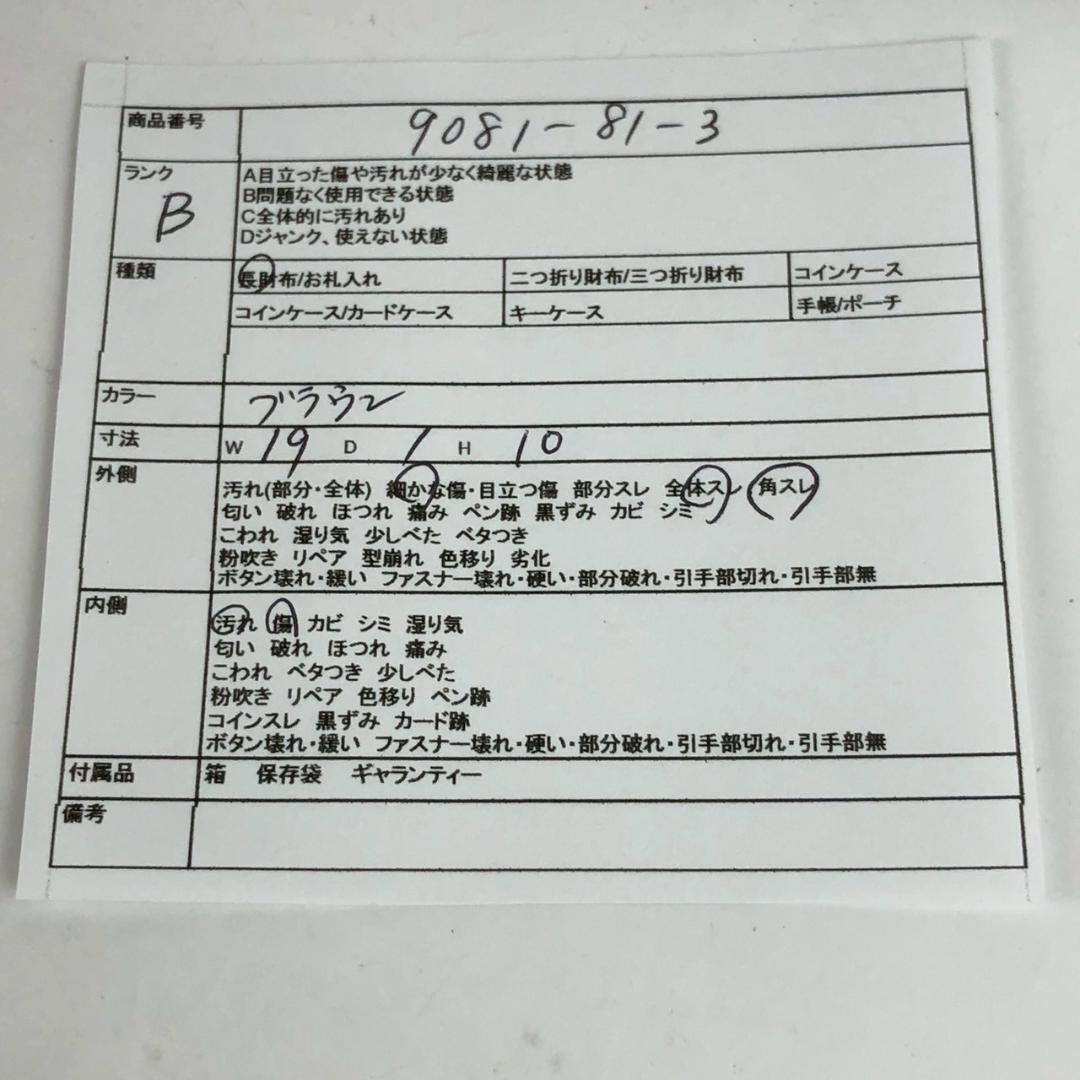 商品番号 9081-81-3
ランク B
A目立った傷や汚れが少なく綺麗な状態
B問題なく使用できる状態
C全体的に汚れあり
Dジャンク、使えない状態
種類 長財布/お札入れ 二つ折り財布/三つ折り財布 コインケース
コインケース/カードケース キーケース 手帳/ポーチ
カラー ブラウン
寸法 W 19 D 1 H 10
外側 汚れ(部分・全体) 細かな傷・目立つ傷 部分スレ 全体スレ 角スレ
匂い 破れ ほつれ 痛み ペン跡 黒ずみ カビ シミ
こわれ 湿り気 少しべた ベタつき
粉吹き リペア 型崩れ 色移り 劣化
ボタン壊れ・緩い ファスナー壊れ・硬い・部分破れ・引手部切れ・引手部無
内側 汚れ 傷 カビ シミ 湿り気
匂い 破れ ほつれ 痛み
こわれ ベタつき 少しべた
粉吹き リペア 色移り ペン跡
コインスレ 黒ずみ カード跡
ボタン壊れ・緩い ファスナー壊れ・硬い・部分破れ・引手部切れ・引手部無
付属品 箱 保存袋 ギャランティー
備考